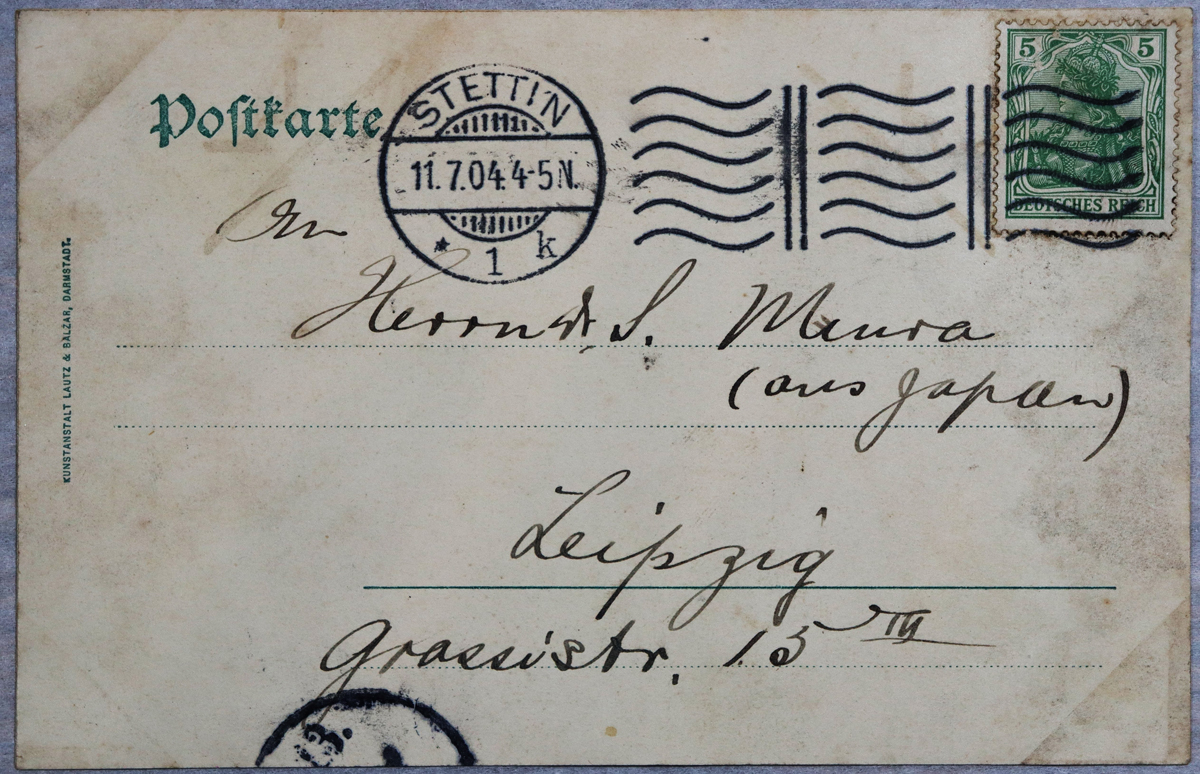 Postkarte
STETTIN
11.7.04.4-5N.
* 1 k
5 5
DEUTSCHES REICH
An
Herrn Dr. S. Miura
(aus Japan)
Leipzig
Grassistr. 15 III
KUNSTANSTALT LAUTZ & BALZAR, DARMSTADT.
13.